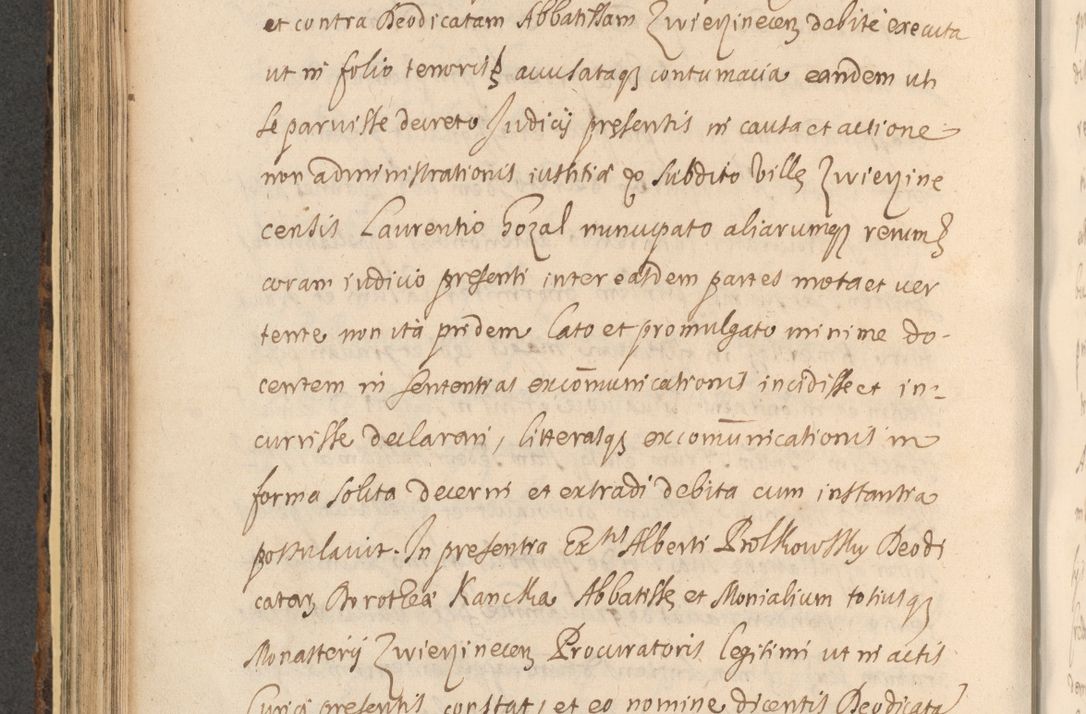 et contra Deodicatam Abbatissam Zwierzinecen debite executa
ut in folio tenoris accusataq contumacia eandem uti
se paruisse decreto Judicij presentis in causa et actione
non administrationis iustitiæ ex subdito Villę Zwierzine
censis Laurentio Gozal nuncupato aliarumq rerum
coram iudicio presenti inter easdem partes mota et ver
tente non ita pridem lato et promulgato minime do-
centem in sententias excōmunicationis incidisse et in-
currisse declarari, litterasq excomūnicationis in
forma solita decerni et extradi debita cum instantia
postulavit. In presentia Alberti Deodi
catarz Dorotheæ Kancka Abbatissę et Monialium totiusq
Monasterij Zwierzinecen Procuratoris legitimi ut in actis
Curiæ presentis constat, et eo nomine dicentis Deodicatā